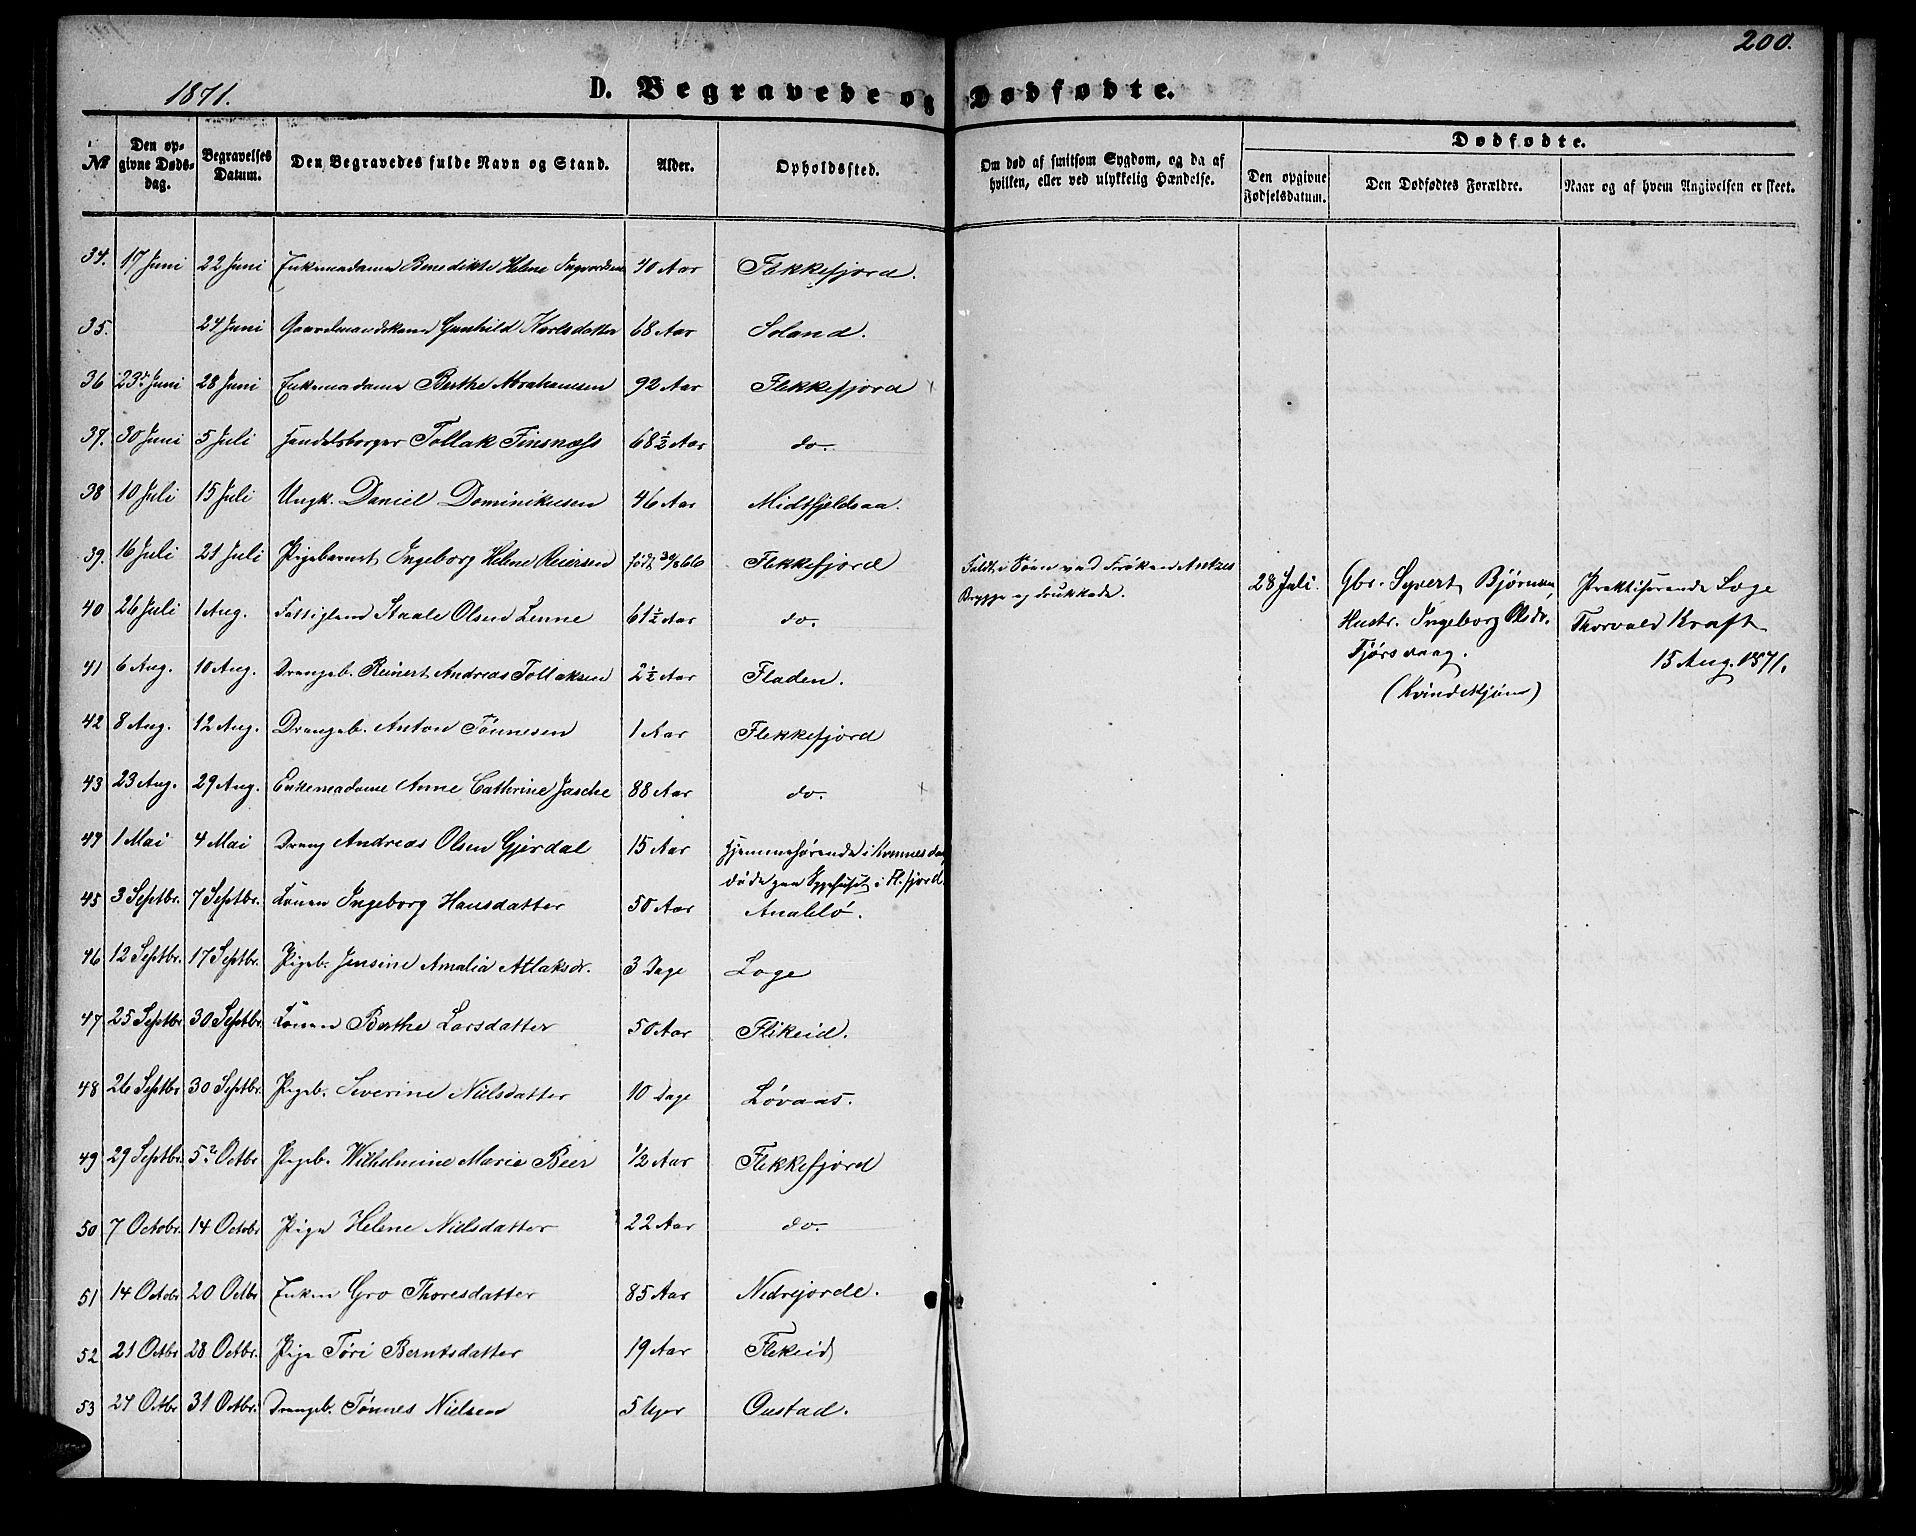 200.
1871.
D. Begravede og Dødfødte.
№
Den opgivne Dødsdag.
Begravelses Datum.
Den Begravedes fulde Navn og Stand.
Alder.
Opholdssted.
Om død af smitsom Sygdom, og da af hvilken, eller ved ulykkelig Hændelse.
Dødfødte.
Den opgivne Fødselsdatum.
Den Dødfødtes Forældre.
Naar og af hvem Angivelsen er skeet.
34. 17 Juni 22 Juni Enkemadame Benedikte Helene Ingvardsen 40 Aar Flekkefjord.
35. 24 Juni Gaardmandskone Gunhild Karlsdatter 68 Aar Soland.
36 23de Juni 28 Juni Enkemadame Berthe Abrahamsen 92 Aar Flekkefjord
37. 30 Juni 5 Juli Handelsborger Tollak Finsnæss 68 1/2 Aar do.
38 10 Juli 15 Juli Ungk. Daniel Dominikusen 46 Aar Midtfjeldsaa.
39. 16 Juli 21 Juli Pigebarnet Ingeborg Helene Reiersen født 30/8 66 Flekkefjord Faldt i Søen ved Frøken Ankes
Brygge og druknede.
40 26 Juli 1 Aug. Fattiglem Staale Olsen Lenne 61 1/2 Aar do.
28 Juli. Gbr. Syvert Bjørnsen, Hustr. Ingeborg Olsdr. Tjørsvaag.
(Kvindekjøn)
Praktiserende Læge
Thorvald Kraft
15 Aug. 1871.
41 6 Aug. 10 Aug. Drengeb. Reinert Andreas Tollaksen 2 1/2 Aar Fladen.
42 8 Aug. 12 Aug. Drengeb. Anton Tønnesen 1 Aar Flekkefjord
43 23 Aug. 29 Aug. Enkemadame Anne Cathrine Jasche 88 Aar do.
44 1 Mai 4 Mai Dreng Andreas Olsen Gjerdal 15 Aar Hjemmehørende i
døde paa Sygehuset i Fl.fjord.
45 3 Septbr. 7 Septbr. Konen Ingeborg Hansdatter 50 Aar Anabelø.
46 12 Septbr. 17 Septbr. Pigeb. Jensine Amalia Atlaksdr. 3 Dage Loge
47 25 Septbr 30 Septbr. Konen Berthe Larsdatter 50 Aar Flikeid.
48 26 Septbr 30 Septbr. Pigeb. Severine Nielsdatter 10 Dage Løvaas.
49 29 Septbr. 5te Octbr Pigeb. Wilhelmine Marie Beer 1/2 Aar Flekkefjord
50 7 Octobr. 14 Octobr Pige Helene Nielsdatter 22 Aar do.
51 14 Octobr 20 Octbr Enken Gro Thoresdatter 85 Aar Nedrejorde.
52 21 Octbr 28 Octbr. Pige Tøri Berntsdatter 19 Aar Flekeid
53 24 Octbr 31 Octbr. Drengeb. Tønnes Nielsen 5 Uger Oustad.